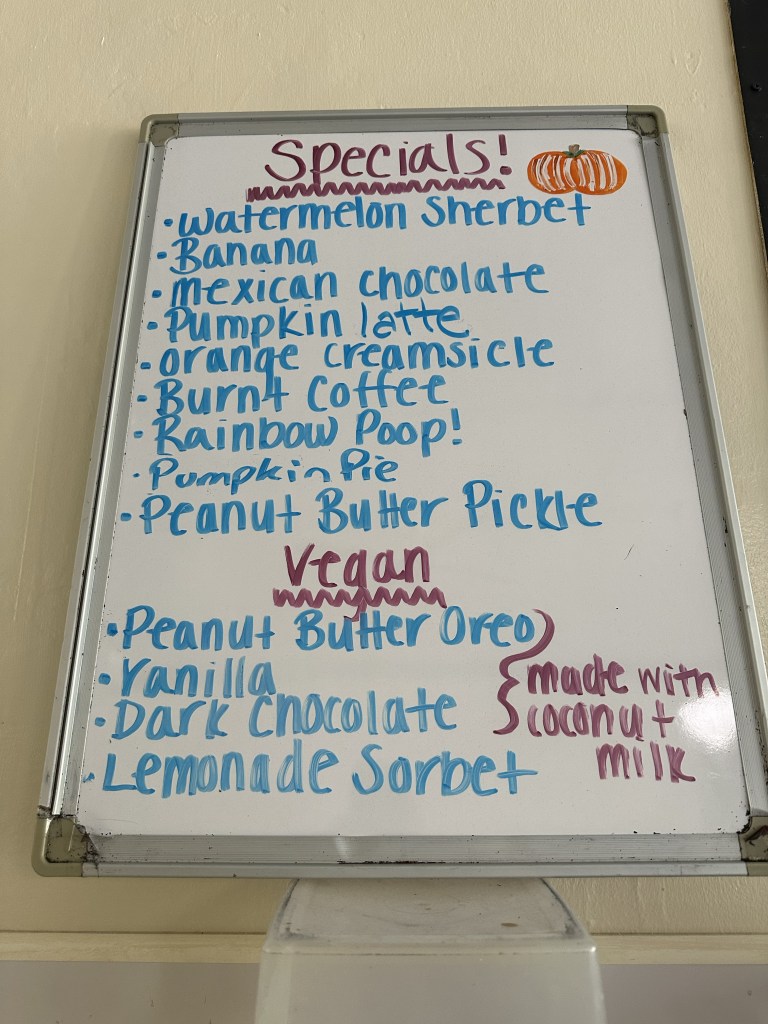 Specials!
• Watermelon Sherbet
• Banana
• mexican chocolate
• Pumpkin latte
• orange creamsicle
• Burnt Coffee
• Rainbow Poop!
• Pumpkin Pie
• Peanut Butter Pickle
Vegan
• Peanut Butter Oreo
• Vanilla
• Dark Chocolate
• Lemonade Sorbet
made with
coconut
milk